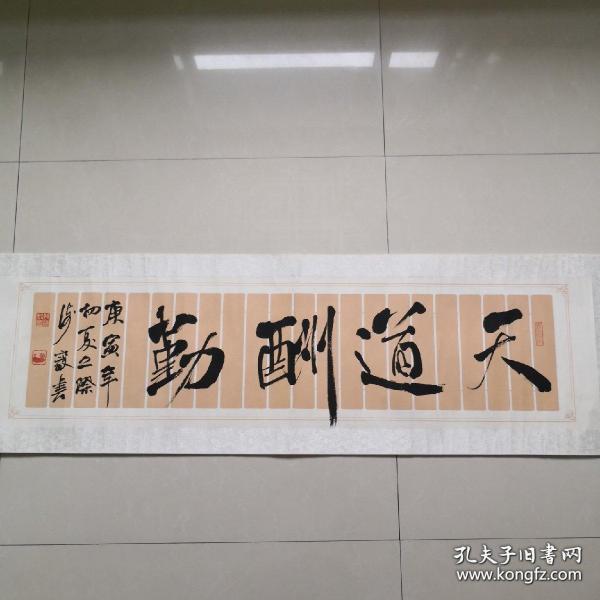 天道酬勤
庚寅年
初夏之際
書
孔夫子旧書网
www.kongfz.com